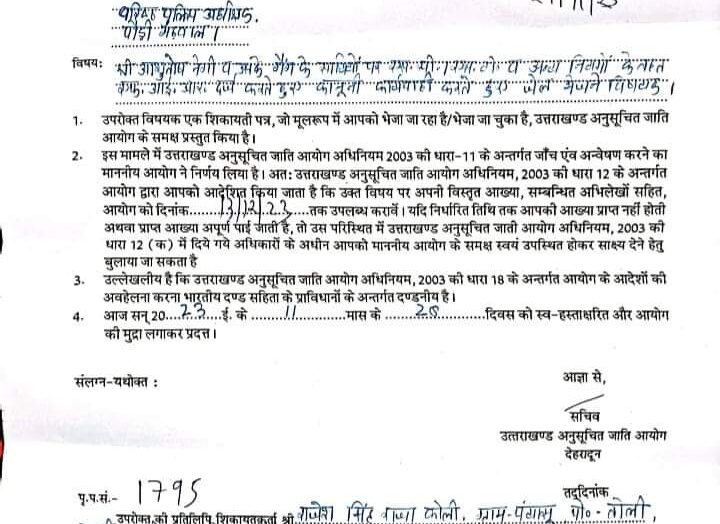 वरिष्ठ पुलिस अधीक्षक,
पौड़ी गढ़वाल।
विषय: श्री आशुतोष नेगी व उनके गैंग के साथियों पर एस. सी. / एस. टी. व अन्य नियमों के तहत
एफ. आई. आर. दर्ज करते हुए कानूनी कार्यवाही करते हुए जेल भेजने विषयक।
1. उपरोक्त विषयक एक शिकायती पत्र, जो मूलरूप में आपको भेजा जा रहा है/भेजा जा चुका है, उत्तराखण्ड अनुसूचित जाति
आयोग के समक्ष प्रस्तुत किया है।
2. इस मामले में उत्तराखण्ड अनुसूचित जाति आयोग अधिनियम 2003 की धारा-11 के अन्तर्गत जाँच एंव अन्वेषण करने का
माननीय आयोग ने निर्णय लिया है। अत: उत्तराखण्ड अनुसूचित जाति आयोग अधिनियम, 2003 की धारा 12 के अन्तर्गत
आयोग द्वारा आपको आदेशित किया जाता है कि उक्त विषय पर अपनी विस्तृत आख्या, सम्बन्धित अभिलेखों सहित,
आयोग को दिनांक.....13/12/23.....तक उपलब्ध करावें। यदि निर्धारित तिथि तक आपकी आख्या प्राप्त नहीं होती
अथवा प्राप्त आख्या अपूर्ण पाई जाती है, तो उस परिस्थित में उत्तराखण्ड अनुसूचित जाति आयोग अधिनियम, 2003 की
धारा 12 (क) में दिये गये अधिकारों के अधीन आपको माननीय आयोग के समक्ष स्वयं उपस्थित होकर साक्ष्य देने हेतु
बुलाया जा सकता है
3. उल्लेखलीय है कि उत्तराखण्ड अनुसूचित जाति आयोग अधिनियम, 2003 की धारा 18 के अन्तर्गत आयोग के आदेशों की
अवहेलना करना भारतीय दण्ड सहिता के प्राविधानों के अन्तर्गत दण्डनीय है।
4. आज सन् 20....23....ई. के ..........11..........मास के ..........28..........दिवस को स्व-हस्ताक्षरित और आयोग
की मुद्रा लगाकर प्रदत्त।
संलग्न-यथोक्त :
आज्ञा से,
सचिव
उत्तराखण्ड अनुसूचित जाति आयोग
देहरादून
पृ.प.सं.- 1795
तद्दिनांक
उपरोक्त की प्रतिलिपि शिकायतकर्ता श्री राजेश सिंह राजा कोली, ग्राम-पंगासू पो० - तोली,